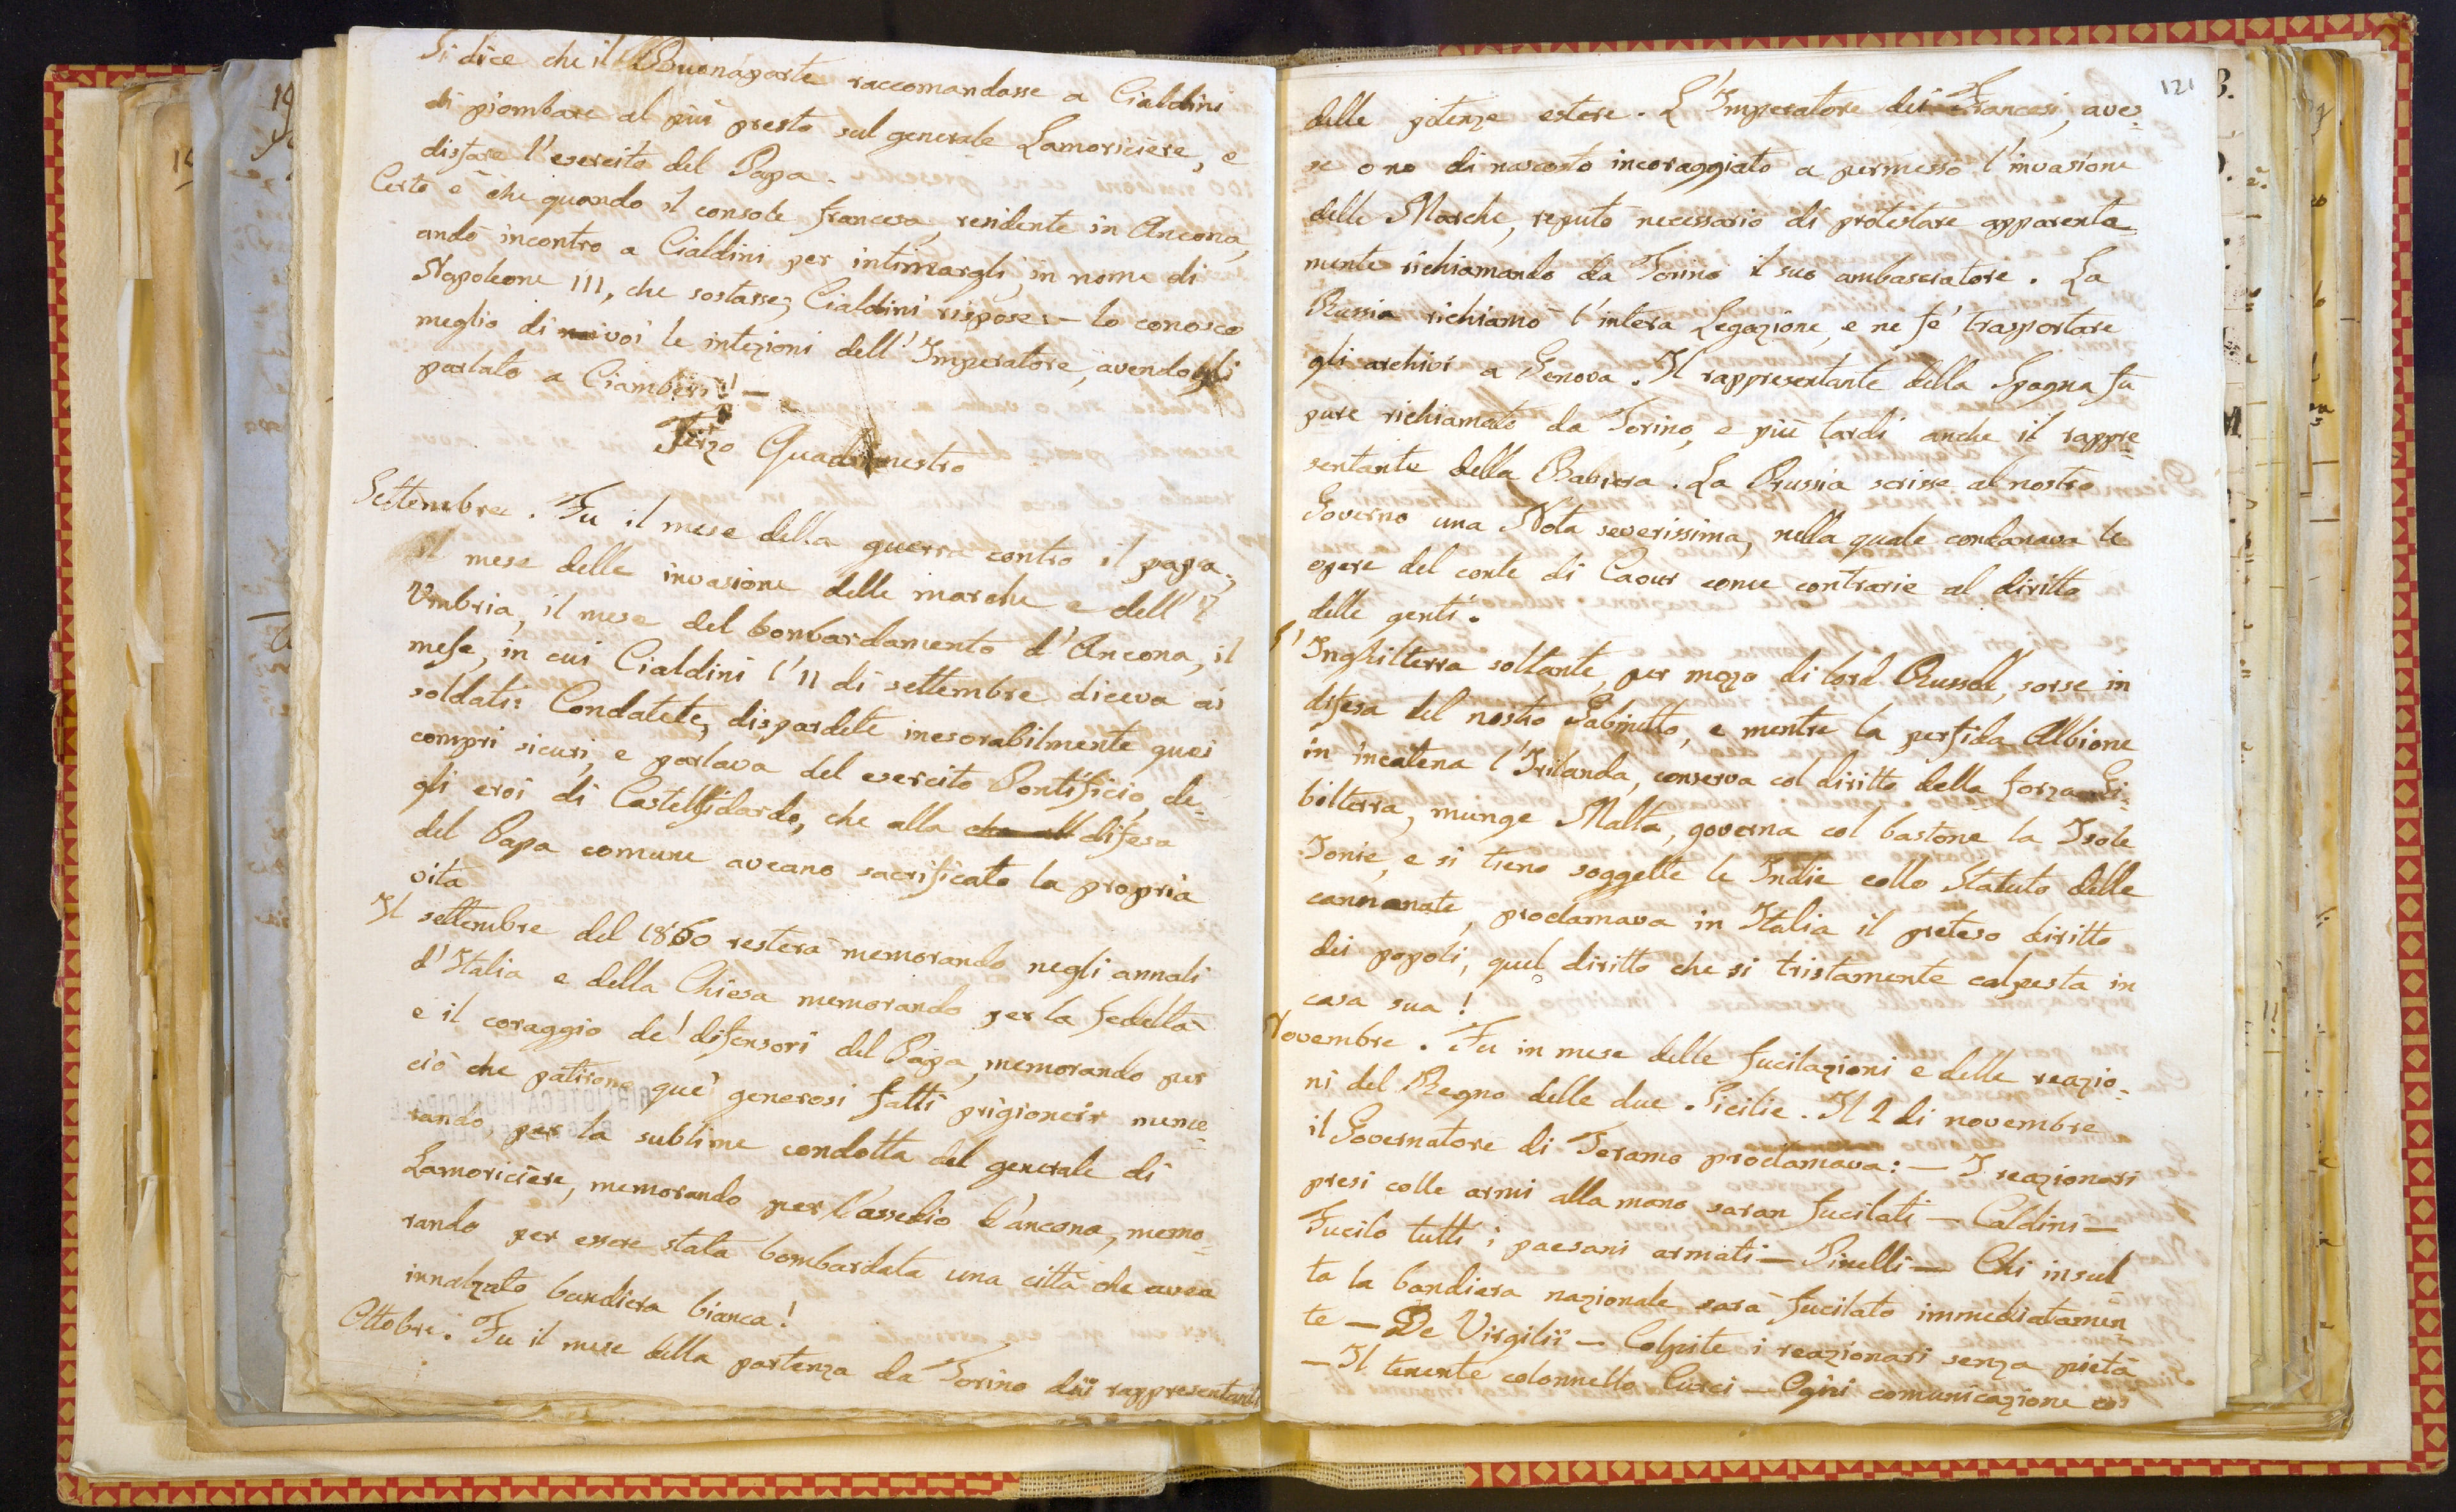 Si dice che il Buonaparte raccomandasse a Cialdini
di piombare al più presto sul generale Lamoricière, e
disfare l'esercito del Papa.
Certo è che quando il console francese, residente in Ancona,
andò incontro a Cialdini per intimargli, in nome di
Napoleone III, che sostasse, Cialdini rispose: — Io conosco
meglio di voi le intezioni dell'Imperatore, avendogli
parlato a Ciamberì! —
Terzo Quadrimestro
Settembre. Fu il mese della guerra contro il papa,
il mese delle invasione delle marche e dell'
Umbria, il mese del bombardamento d'Ancona, il
mese, in cui Cialdini l'11 di settembre diceva ai
soldati: Condatete, dispardete inesorabilmente quei
compri sicuri, e parlava del esercito Pontificio, de-
gli eroi di Castelfidardo, che alla che all difesa
del Papa comune aveano sacrificato la propria
vita
Il settembre del 1860 resterà memorando negli annali
d'Italia e della Chiesa memorando per la fedeltà
e il coraggio de' difensori del Papa, memorando per
ciò che patirono que' generosi fatti prigioneir memo-
rando, per la sublime condotta del generale di
Lamoricière, memorando per l'assedio d'ancona, memo-
rando per essere stata bombardata una città che avea
innalzato bandiera bianca!
Ottobre. Fu il mese della partenza da Torino dei rappresentanti
121
delle potenze estere. L'Imperatore dei Francesi, aves-
se o no di nascosto incoraggiato a permesso l'invasione
delle Marche, reputò necessario di protestare apparente
mente richiamando da Torino il suo ambasciatore. La
Russia richiamò l'intera Legazione, e ne fe' trasportare
gli archivi a Genova. Il rappresentante della Spagna fu
pure richiamato da Torino, e più tardi anche il rappre-
sentante della Baviera. La Prussia scrisse al nostro
Governo una Nota severissima, nella quale condanava le
opere del conte di Caour come contrarie al diritto
delle genti.
L'Inghilterra soltante, per mezzo di lord Russell, sorse in
difesa del nostro Gabinetto, e mentre la perfida Albione
in incatena l'Irilanda, conserva col diritto della forza Gi-
bilterra, munge Malta, governa col bastone la Isole
Jonie, e si tiene soggette le Indie collo Statuto delle
cannonate, proclamava in Italia il preteso diritto
dei popoli, quel diritto che si tristamente calpesta in
casa sua!
Novembre. Fu in mese delle fucilazioni e delle reazio-
ni del Regno delle due Sicilie. Il 2 di novembre
il Governatore di Teramo proclamava: — I reazionari
presi colle armi alla mano saran fucilati — Caldini —
Fucilo tutti i paesani armati — Pinelli — Chi insul-
ta la bandiera nazionale sarà fucilato immediatamen-
te — De Virgilii — Colpite i reazionari senza pietà
— Il tenente colonnello Curci — Ogni comunicazione